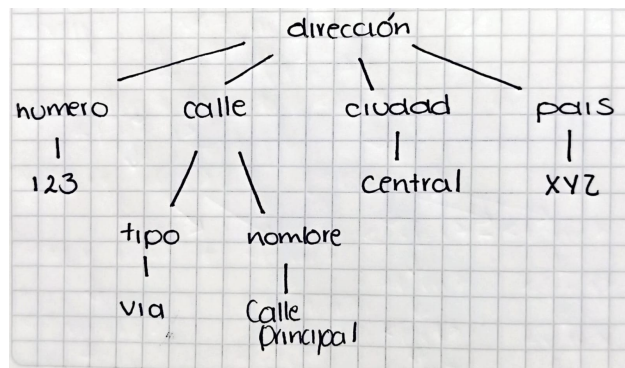 dirección
numero calle ciudad pais
123 central XYZ
tipo nombre
via Calle
principal